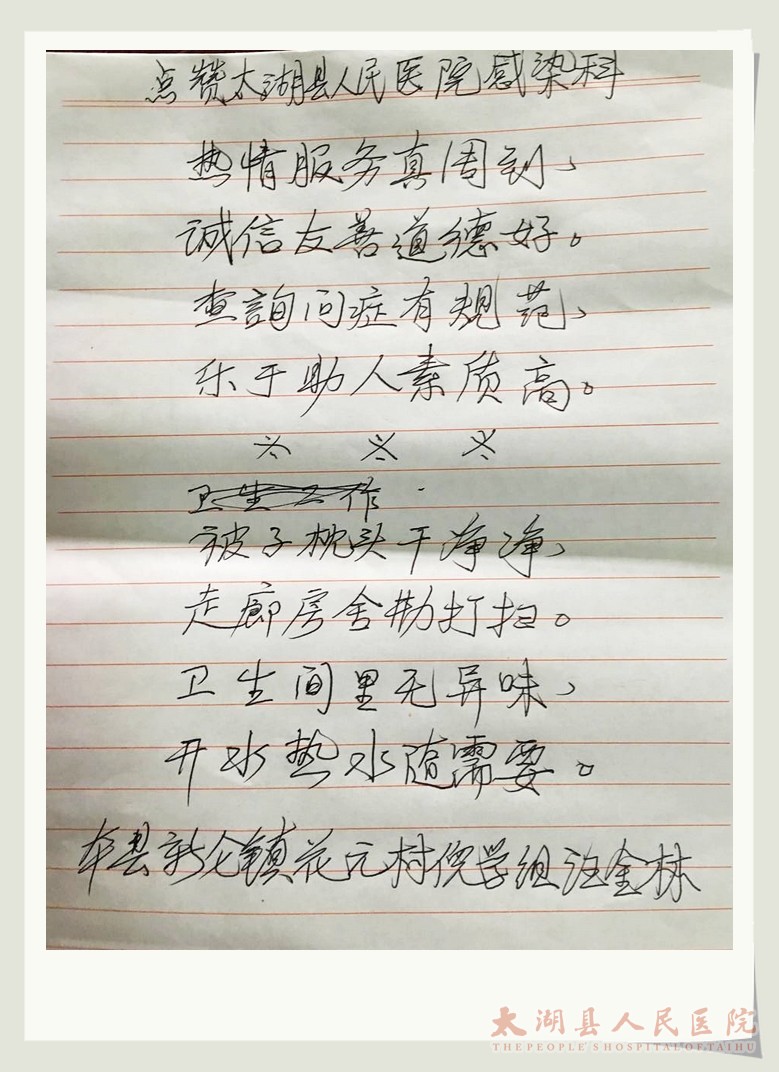 点赞太湖县人民医院感染科
热情服务真周到、
诚信友善道德好。
查詢问症有规范、
乐于助人素质高。
卫生工作
被子枕头干净净、
走廊房舍勤打扫。
卫生间里无异味、
开水热水随需要。
本县新仓镇花元村倪学组汪金林
太湖县人民医院
THE PEOPLE'S HOSPITAL OF TAIHU